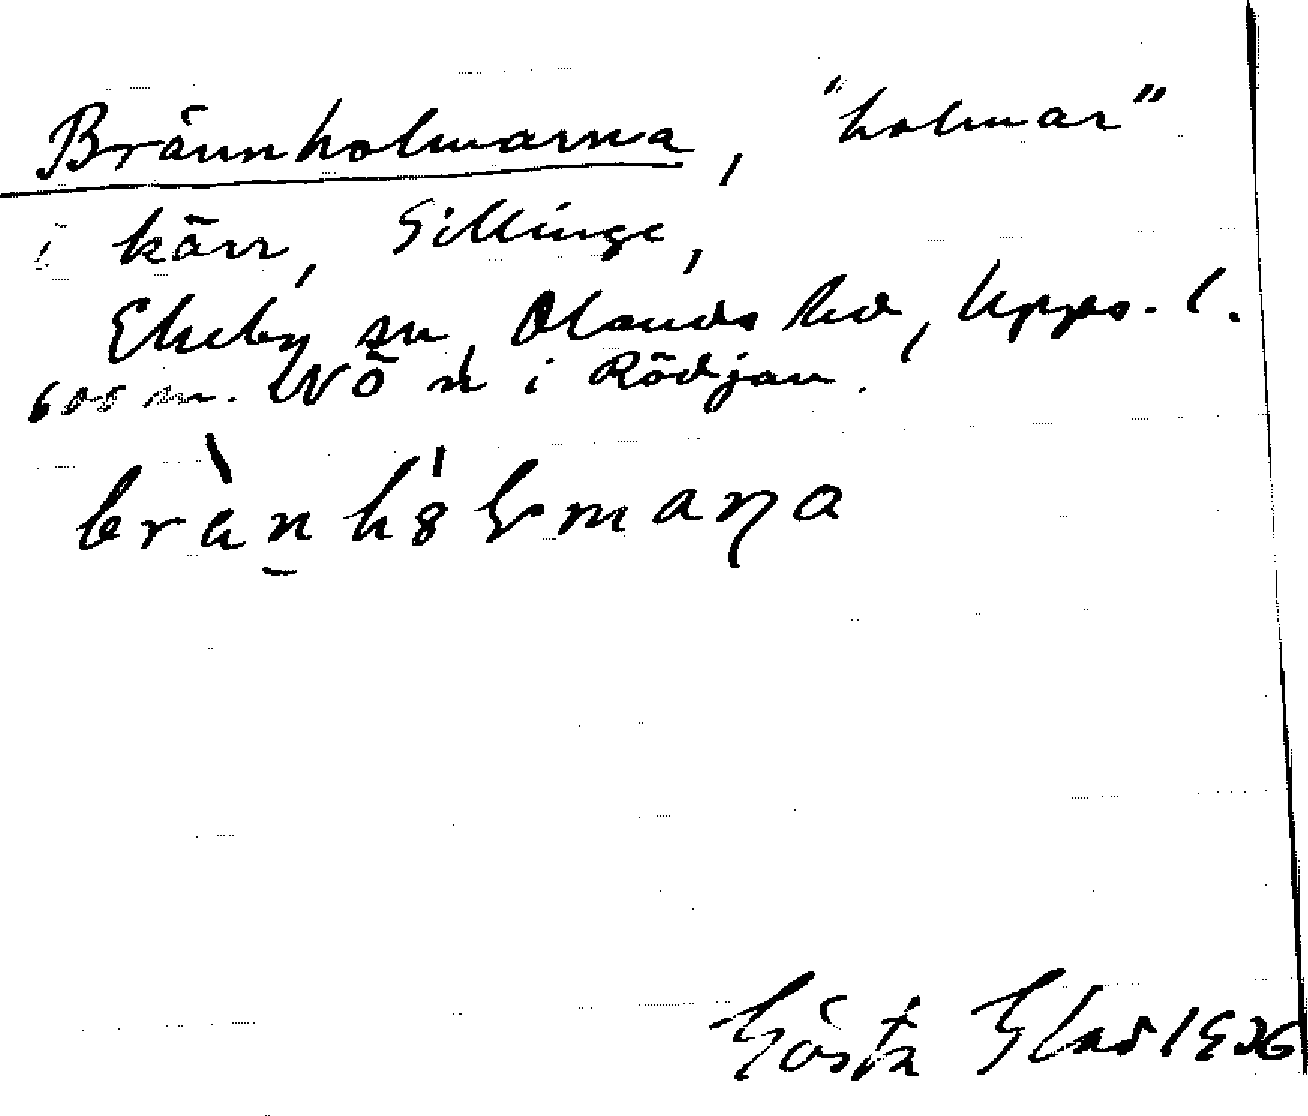 Brännholmarna, "holmar"
i kärr, Gillinge,
Ekeby sn, Olands hd, Upps. l.
600 m. NÖ n i Rödjan.
brànhòlmaɳa
Gösta Glad 1936